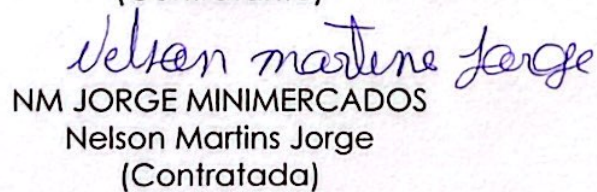 Nelson Martins Jorge
NM JORGE MINIMERCADOS
Nelson Martins Jorge
(Contratada)